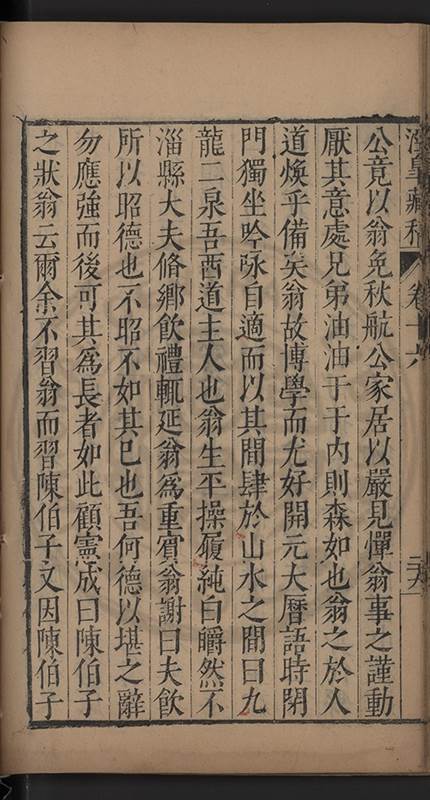 涇臯藏稿 卷十六 二六
公竟以翁免秋航公家居以嚴見憚翁事之謹動
厭其意處兄弟油油于于內則森如也翁之於人
道煥乎備矣翁故博學而尤好開元大曆語時閉
門獨坐吟咏自適而以其間肆於山水之間曰九
龍二泉吾西道主人也翁生平操履純白皭然不
淄縣大夫脩鄉飲禮輒延翁爲重賓翁謝曰夫飲
所以昭德也不昭不如其已也吾何德以堪之辭
勿應強而後可其爲長者如此顧憲成曰陳伯子
之狀翁云爾余不習翁而習陳伯子文因陳伯子